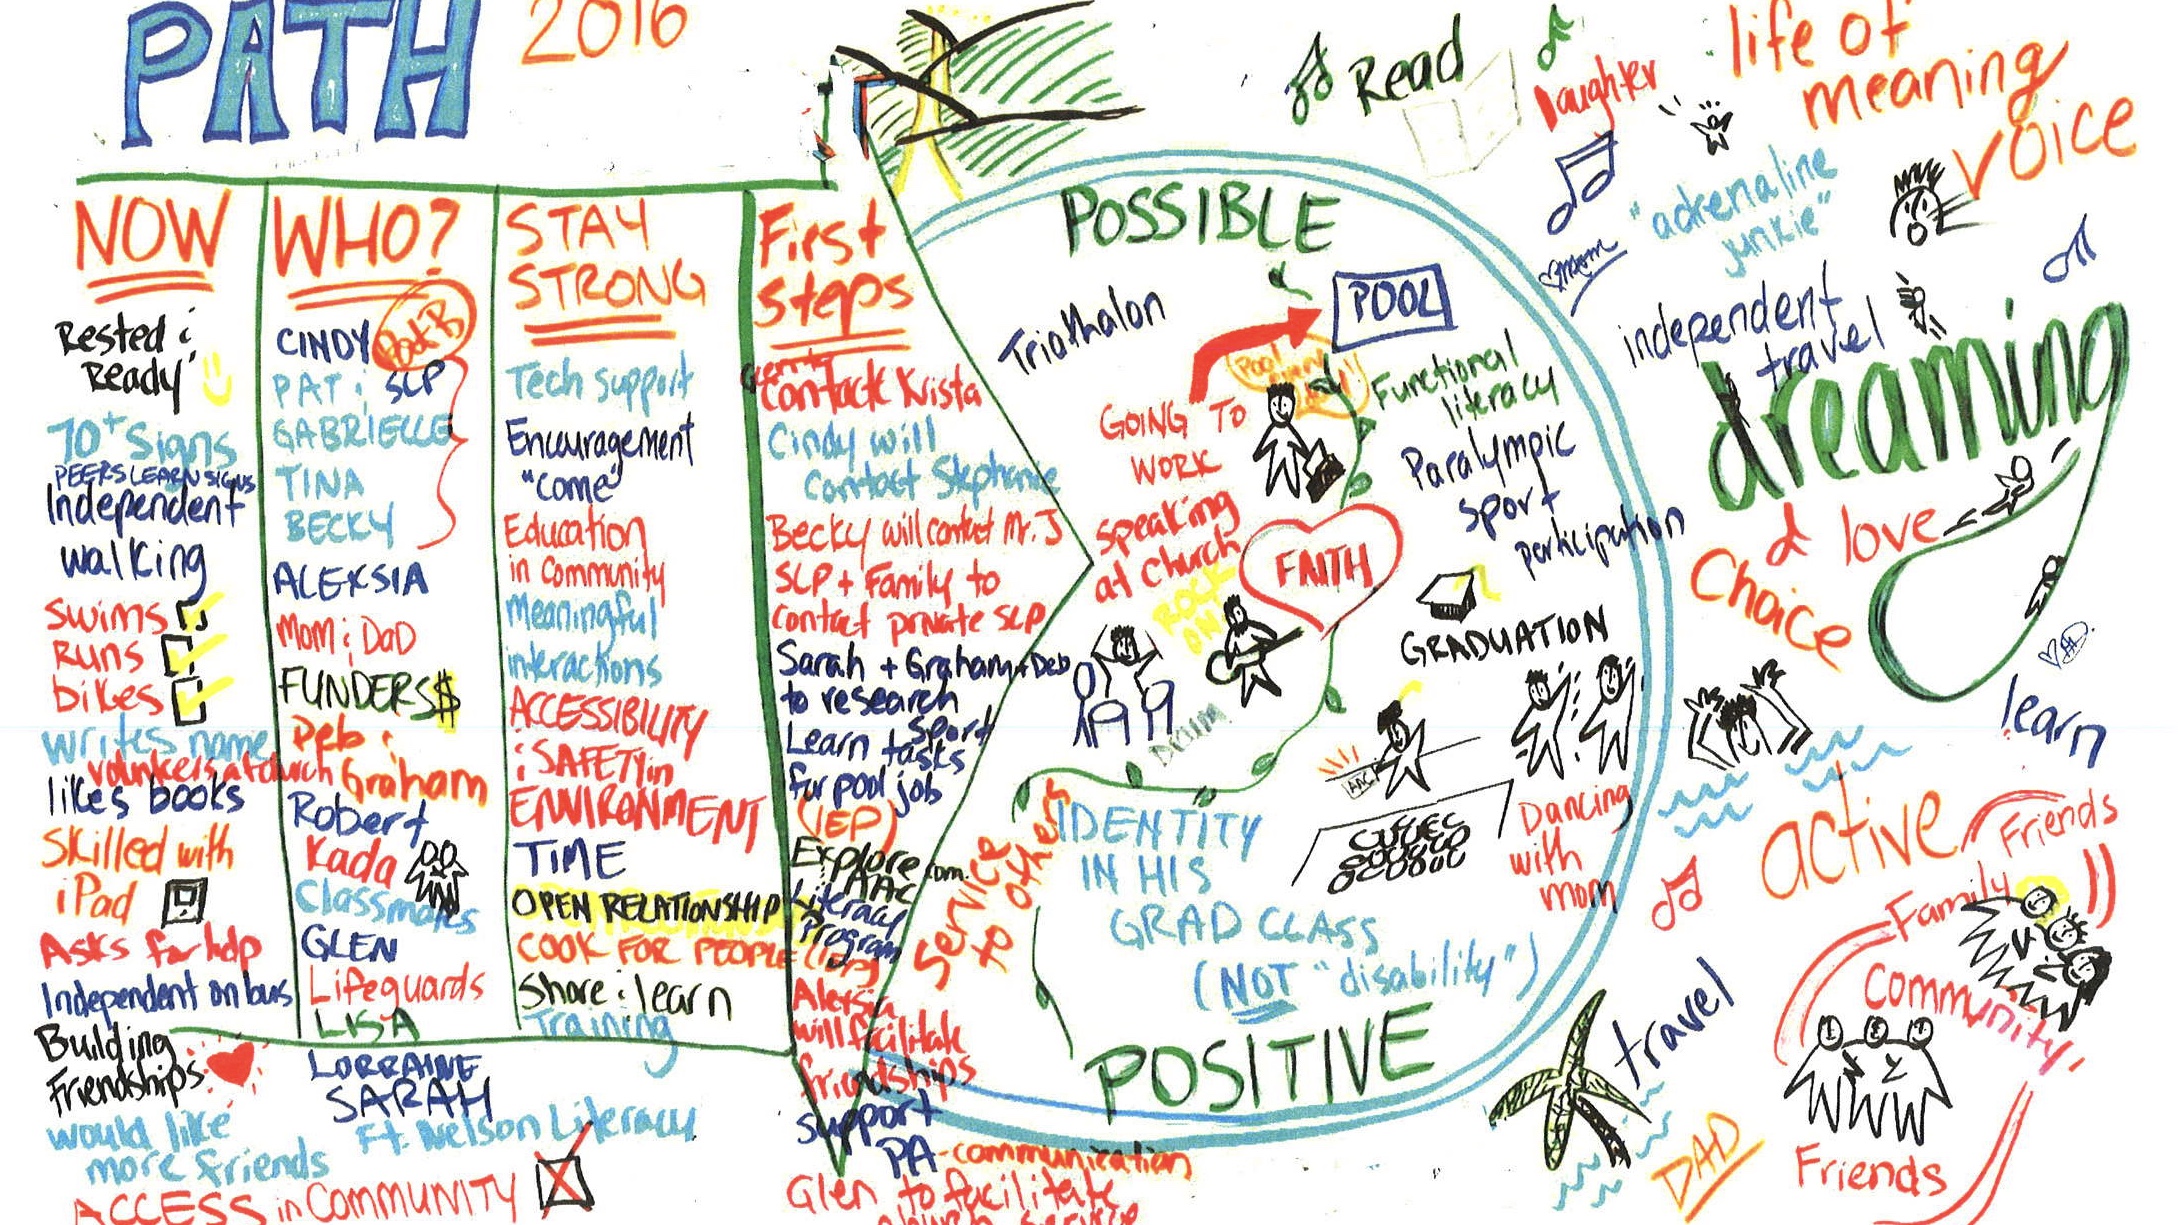 PATH
2016
NOW
Rested &
Ready
70+ Signs
PEERS LEARN SIGNS
Independent
walking
Swims
Runs
bikes
writes name
volunteers at church
likes books
Skilled with
iPad
Asks for help
Independent on bus
Building
Friendships
would like
more friends
ACCESS in COMMUNITY
WHO?
CINDY
PAT & SLP
GABRIELLE
TINA
BECKY
ALEKSIA
Mom & DaD
FUNDERS $
Deb &
Graham
Robert
Kada
Classmates
GLEN
Lifeguards
LISA
LORRAINE
SARAH
Ft. Nelson Literacy
STAY
STRONG
Tech support
Encouragement
"come"
Education
in Community
Meaningful
interactions
ACCESSIBILITY
& SAFETY in
ENVIRONMENT
TIME
OPEN RELATIONSHIP
COOK FOR PEOPLE
Share & learn
Training
First
Steps
contact Krista
Cindy will
contact Stephanie
Becky will contact Mr. J
SLP + Family to
contact private SLP
Sarah + Graham + Deb
to research
sport
Learn tasks
for pool job
(IEP)
Explore com.
AAC
Literacy
Program
(IEP)
Aleksia
will facilitate
friendships
support
PA - communication
Glen to facilitate
church service
POSSIBLE
Triathalon
POOL
GOING TO
WORK
Functional
literacy
Paralympic
sport
participation
speaking
at church
FAITH
ROCK
ON
Drum
GRADUATION
AAC
Dancing
with
mom
Service
to others
IDENTITY
IN HIS
GRAD CLASS
(NOT "disability")
POSITIVE
Read
Laughter
life of
meaning
voice
"adrenaline
junkie"
♡ mom
independent
travel
dreaming
love
Choice
learn
active
Friends
Family
Community
travel
DAD
Friends